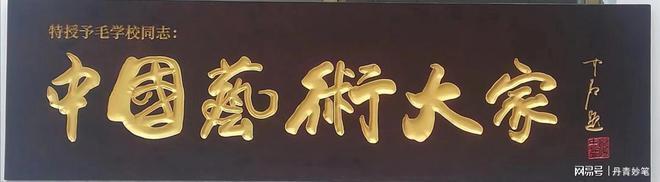 特授予毛学校同志：
中國藝術大家
网易号 | 丹青妙笔